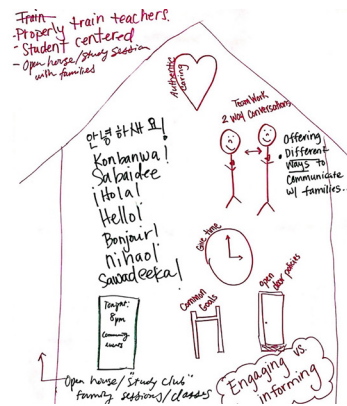 Train
- Properly train teachers.
- Student centered
- Open house/study session
with families
Authentic
Caring
Team Work
2 way Conversations
안녕하새요!
Konbanwa!
Sabaidee
¡Hola!
Hello!
Bonjour!
nihao!
Sawadeeka!
Offering
Different
ways to
Communicate
w/ families...
Give time
Tonight:
8pm
Community
events
Common
Goals
open
door policies
Open house/"Study club"
family sessions/classes
Engaging vs.
informing